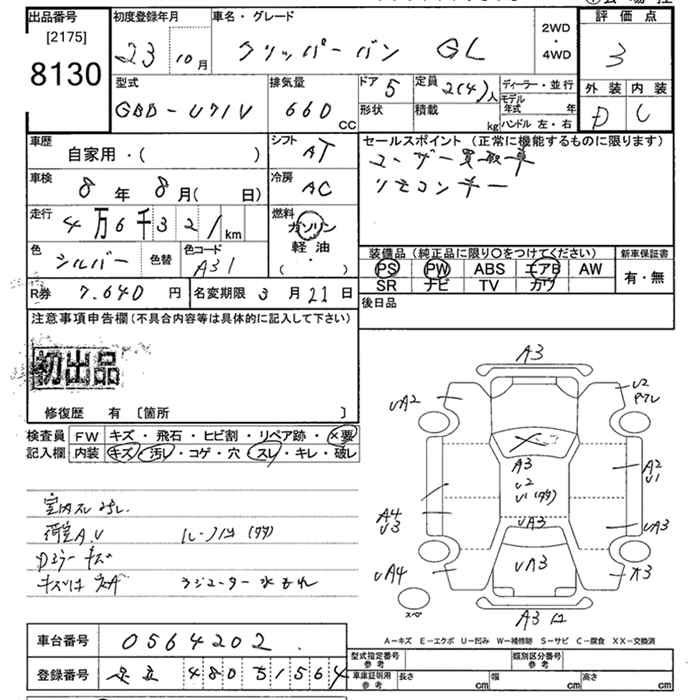 出品番号 初度登録年月 車名・グレード 評価点
[2175] 2WD
8130 23 10月 クリッパーバン GL ・4WD 3
型式 排気量 ドア 5 定員 2(4)人 ディーラー・並行 外装 内装
GBD-U71V 660 CC 形状 積載 kg モデル年式 年 D C
ハンドル 左・右
車歴 シフト セールスポイント (正常に機能するものに限ります)
自家用・( ) AT ユーザー買取車
車検 冷房 リモコンキー
8年 8月( 日) AC
走行 燃料
4万6千321km ガソリン
色 シルバー 色替 色コード A31 軽油 ・( )
装備品 (純正品に限り〇をつけてください) 新車保証書
PS PW ABS エアB AW 有・無
SR ナビ TV カワ
R券 7.640円 名変期限 3月21日 後日品
注意事項申告欄 (不具合内容等は具体的に記入して下さい)
初出品
修復歴 有 [箇所 ]
検査員 FW キズ・飛石・ヒビ割・リペア跡・×要
記入欄 内装 キズ・汚レ・コゲ・穴・スレ・キレ・破レ
A3
UA2
U2
A3
A2
U2
U1
U1(タタ)
A4
U3
UA3
UA3
UA4
UA3
A3
スペ
ルーフ凹(タタ)
Dミラーキズ
ラジエーター水もれ
A-キズ E-エクボ U-凹み W-補修跡 S-サビ C-腐食 XX-交換済
車台番号 0564202
型式指定番号 参考 類別区分番号 参考
登録番号 足立 480 う 1564
車庫証明用 参考 長さ cm 幅 cm 高さ cm